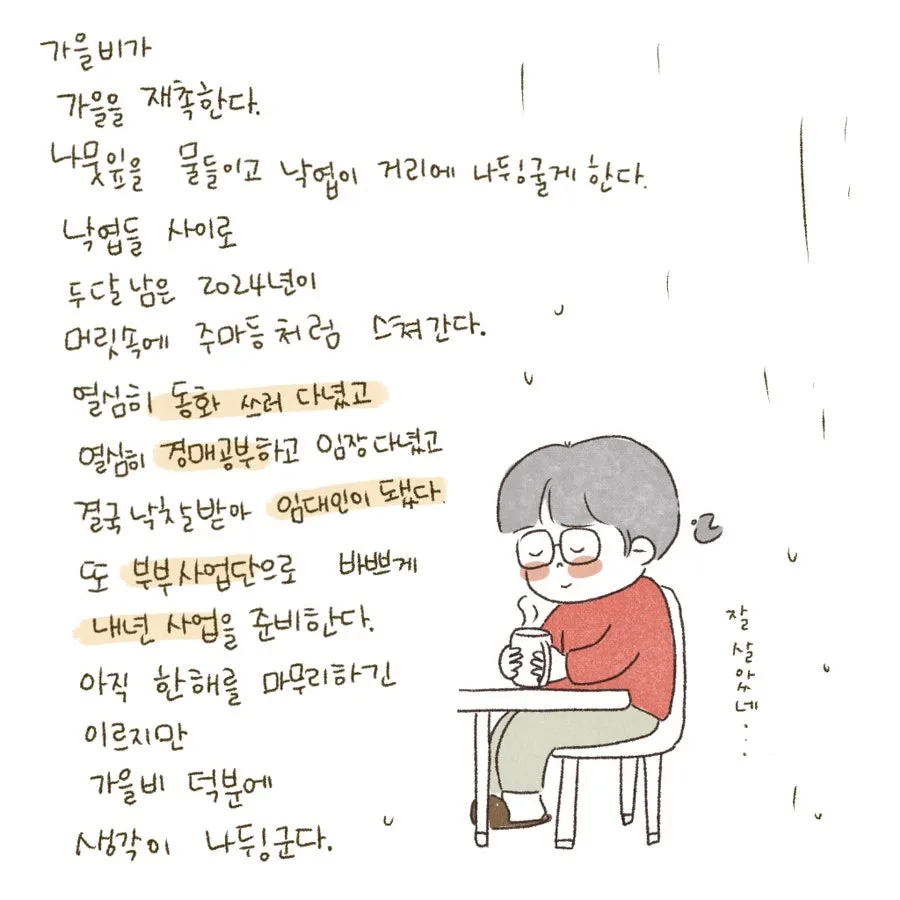 가을비가
가을을 재촉한다.
나뭇잎을 물들이고 낙엽이 거리에 나뒹굴게 한다.
낙엽들 사이로
두달 남은 2024년이
머릿속에 주마등처럼 스쳐간다.
열심히 동화 쓰러 다녔고
열심히 경매공부하고 임장다녔고
결국 낙찰받아 임대인이 됐다.
또 부부사업단으로 바쁘게
내년 사업을 준비한다.
아직 한해를 마무리하긴
이르지만
가을비 덕분에
생각이 나뒹군다.
잘 살았네...